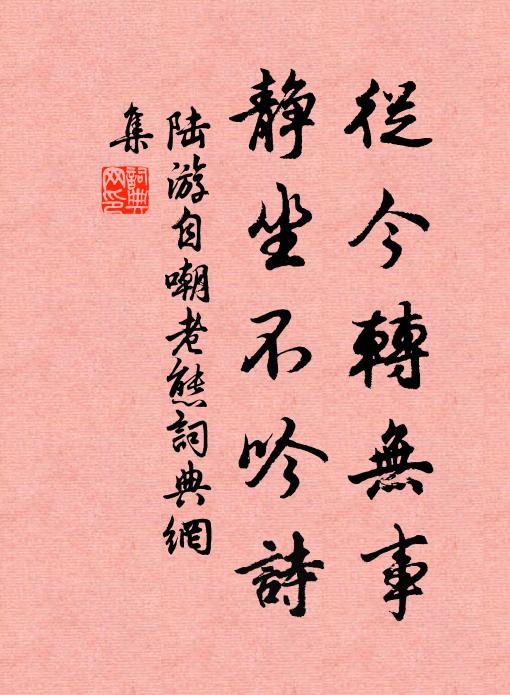 從今轉無事
静坐不吟詩
陆游自嘲老態詞典網
集
詞典
网印